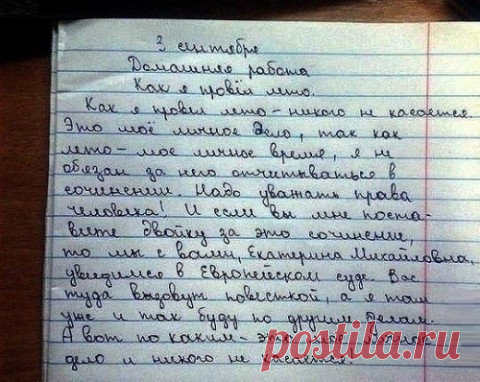 3 сентября
Домашняя работа
Как я провёл лето.
Как я провёл лето – никого не касается.
Это моё личное дело, так как
лето – мое личное время, я не
обязан за него отчитываться в
сочинении. Надо уважать права
человека! И если вы мне поста-
вите двойку за это сочинение,
то мы с вами, Екатерина Михайловна,
увидимся в Европейском суде. Вас
туда вызовут повесткой, а я там
уже и так буду по другим делам.
А вот по каким – это моё личное
дело и никого не касается.
postila.ru